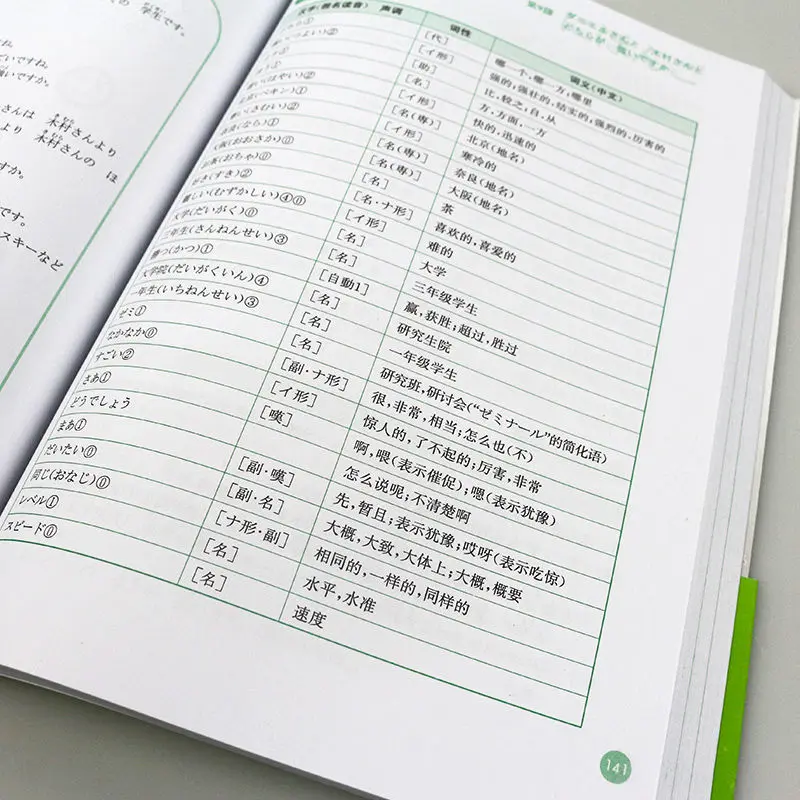 の 学生です。
ですね。
だいですね。
強いですか。
さんは 木村さんより
より 木村さんの ほ
すか。
です。
スキーなど
か。
第9課 ダニエルさんと 木村さんと どちらが 強いですか
汉字(假名读音) 声调 词性 词义(中文)
① [代] 哪一个,哪一方,哪里
(つよい)② [イ形] 强的,强壮的,结实的,强烈的,厉害的
[助] 比,较之,自,从
[名] 方,方面,一方
(はやい)② [イ形] 快的,迅速的
北京(ペキン)① [名(専)] 北京(地名)
(さむい)② [イ形] 寒冷的
奈良(なら)① [名(専)] 奈良(地名)
大阪(おおさか)⓪ [名(専)] 大阪(地名)
お茶(おちゃ)⓪ [名] 茶
好き(すき)② [名·ナ形] 喜欢的,喜爱的
難しい(むずかしい)④⓪ [イ形] 难的
大学(だいがく)⓪ [名] 大学
三年生(さんねんせい)③ [名] 三年级学生
勝つ(かつ)① [自動1] 赢,获胜;超过,胜过
大学院(だいがくいん)④ [名] 研究生院
一年生(いちねんせい)③ [名] 一年级学生
ゼミ① [名] 研究班,研讨会(“ゼミナール”的简化语)
なかなか⓪ [副·ナ形] 很,非常,相当;怎么也(不)
すごい② [イ形] 惊人的,了不起的;厉害,非常
さあ① [嘆] 啊,喂(表示催促);嗯(表示犹豫)
どうでしょう 怎么说呢;不清楚啊
まあ① [副·嘆] 先,暂且;表示犹豫;哎呀(表示吃惊)
だいたい⓪ [副·名] 大概,大致,大体上;大概,概要
同じ(おなじ)⓪ [ナ形·副] 相同的,一样的,同样的
レベル① [名] 水平,水准
スピード⓪ [名] 速度
141